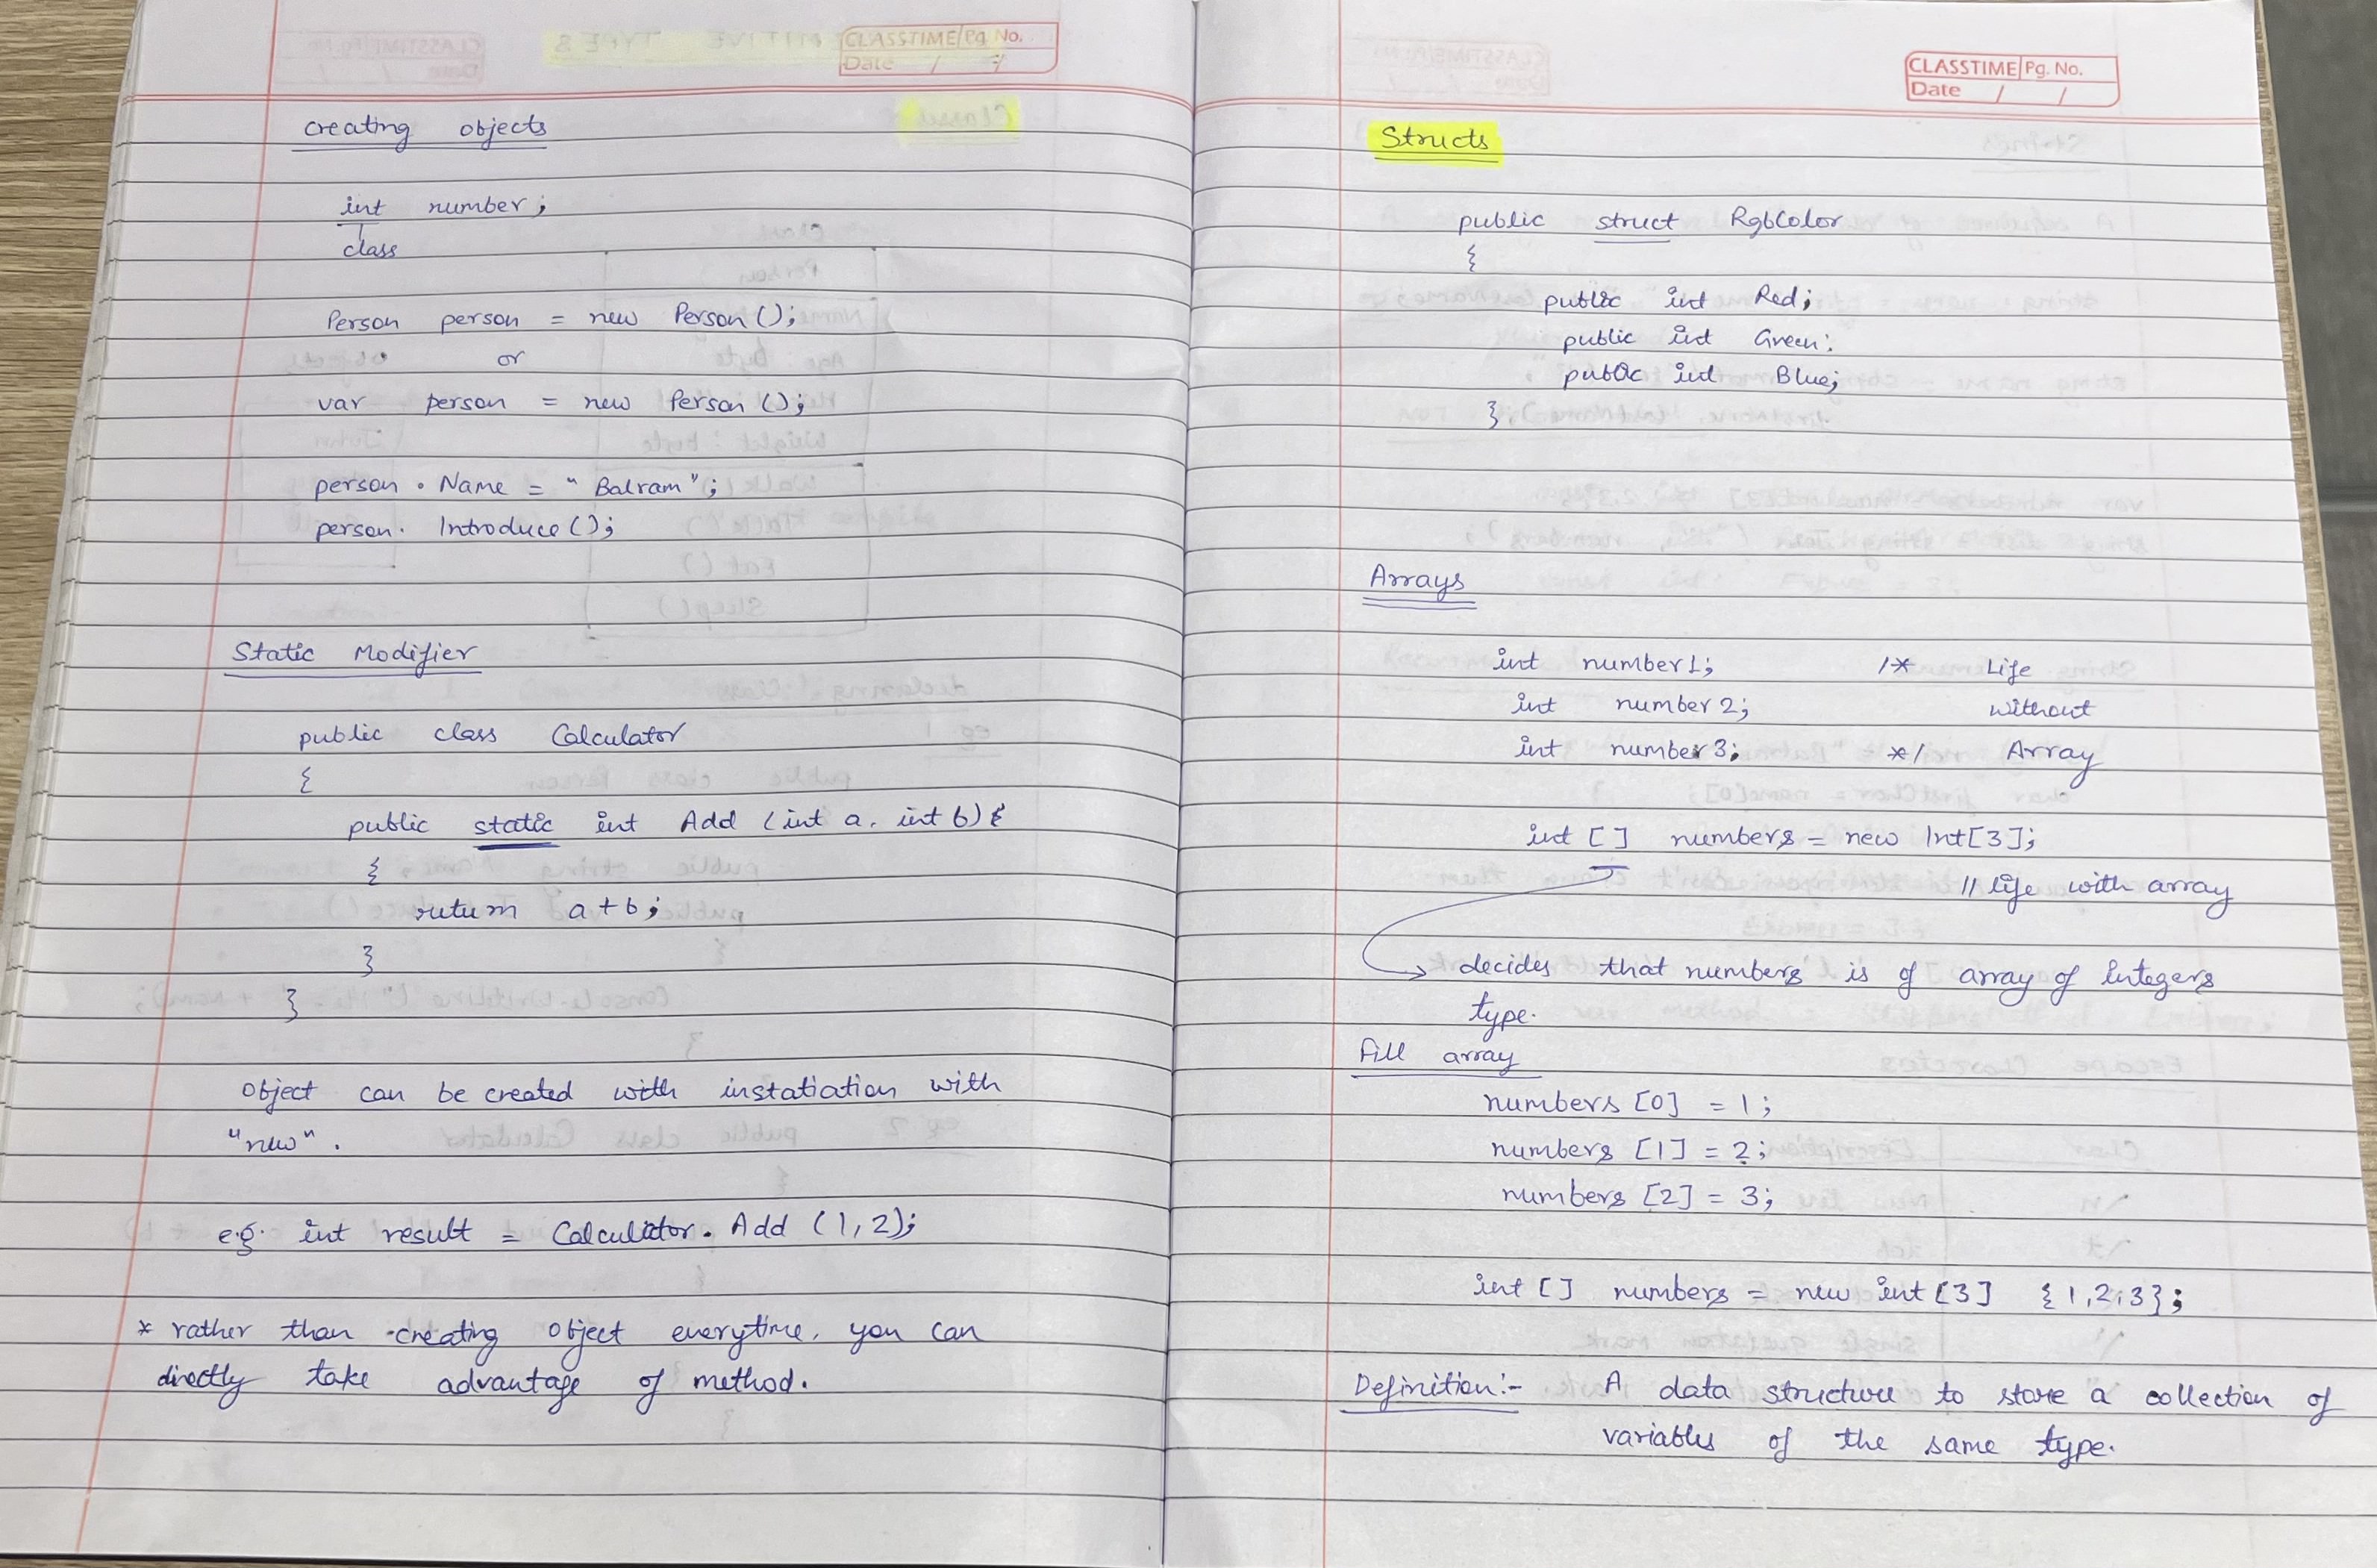 CLASSTIME Pg. No.
Date / /
creating objects
int number;
class
Person person = new Person();
or
var person = new Person();
person.Name = "Balram";
person.Introduce();
Static Modifier
public class Calculator
{
public static int Add (int a, int b) {
{
return a+b;
}
}
Object can be created with instatiation with
"new".
e.g. int result = Calculator.Add (1,2);
* rather than creating object everytime, you can
directly take advantage of method.
CLASSTIME Pg. No.
Date / /
Structs
public struct RgbColor
{
public int Red;
public int Green;
public int Blue;
}
Arrays
int number1; /* Life
int number2; without
int number3; */ Array
int [] numbers = new Int[3];
// life with array
decides that numbers is of array of Integers
type.
Fill array
numbers [0] = 1;
numbers [1] = 2;
numbers [2] = 3;
int [] numbers = new int [3] {1,2,3};
Definition:- A data structure to store a collection of
variables of the same type.